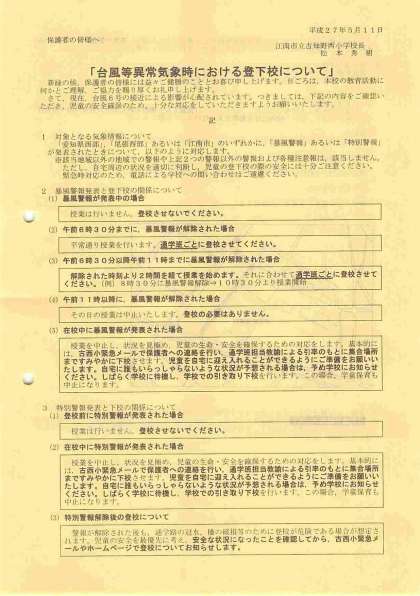 平成27年5月11日
保護者の皆様へ
江南市立古知野西小学校長
松本秀樹
「台風等異常気象時における登下校について」
新緑の候、保護者の皆様には益々ご健勝のこととお喜び申し上げます。日ごろは、本校の教育活動に
何かとご理解、ご協力を賜り厚くお礼申し上げます。
さて、現在、台風6号の接近による影響が心配されています。つきましては、下記の内容をご確認いた
だき、児童の安全確保のため、十分な対応をしていただきますようお願いいたします。
記
1 対象となる気象情報について
「愛知県西部」「尾張西部」あるいは「江南市」のいずれかに、「暴風警報」あるいは「特別警報」
が発表されたときについて、以下のように対応します。
※該当地域以外の地域での警報や上記2つの警報以外の警報および各種注意報は、該当しません。
ただし、自宅周辺の状況を適切に判断し、児童の登下校の際の安全には十分ご注意ください。
緊急時対応のため、電話による学校への問い合わせはご遠慮ください。
2 暴風警報発表と登下校の関係について
(1) 暴風警報が発表中の場合
授業は行いません。登校させないでください。
(2) 午前6時30分までに、暴風警報が解除された場合
平常通り授業を行います。通学班ごとに登校させてください。
(3) 午前6時30分以降午前11時までに暴風警報が解除された場合
解除された時刻より2時間を経て授業を始めます。それに合わせて通学班ごとに登校させて
ください。(例)8時30分に暴風警報解除→10時30分より授業開始
(4) 午前11時以降に、暴風警報が解除された場合
その日の授業は中止いたします。登校の必要はありません。
(5) 在校中に暴風警報が発表された場合
授業を中止し、状況を見極め、児童の生命・安全を確保するための対応をします。基本的に
は、古西小緊急メールで保護者への連絡を行い、通学班担当教諭による引率のもとに集合場所
まですみやかに下校させます。児童を自宅に迎え入れることができるようにご準備をお願いい
たします。自宅に誰もいらっしゃらないような状況が予想される場合は、予め学校にお知らせ
ください。しばらく学校に待機し、学校での引き取り下校を行います。この場合、学童保育も
中止になります。
3 特別警報発表と下校の関係について
(1) 登校前に特別警報が発表された場合
授業は行いません。登校させないでください。
(2) 在校中に特別警報が発表された場合
授業を中止し、状況を見極め、児童の生命・安全を確保するための対応をします。基本的に
は、古西小緊急メールで保護者への連絡を行い、通学班担当教諭による引率のもとに集合場所
まですみやかに下校させます。児童を自宅に迎え入れることができるようにご準備をお願いい
たします。自宅に誰もいらっしゃらないような状況が予想される場合は、予め学校にお知らせ
ください。しばらく学校に待機し、学校での引き取り下校を行います。この場合、学童保育も
中止になります。
(3) 特別警報解除後の登校について
警報が解除された後も、通学路の冠水、橋の破損等のために登校が危険である場合が想定さ
れます。児童の安全を最優先に考え、安全な状況になったことを確認してから、古西小緊急メ
ールやホームページで登校についてお知らせします。